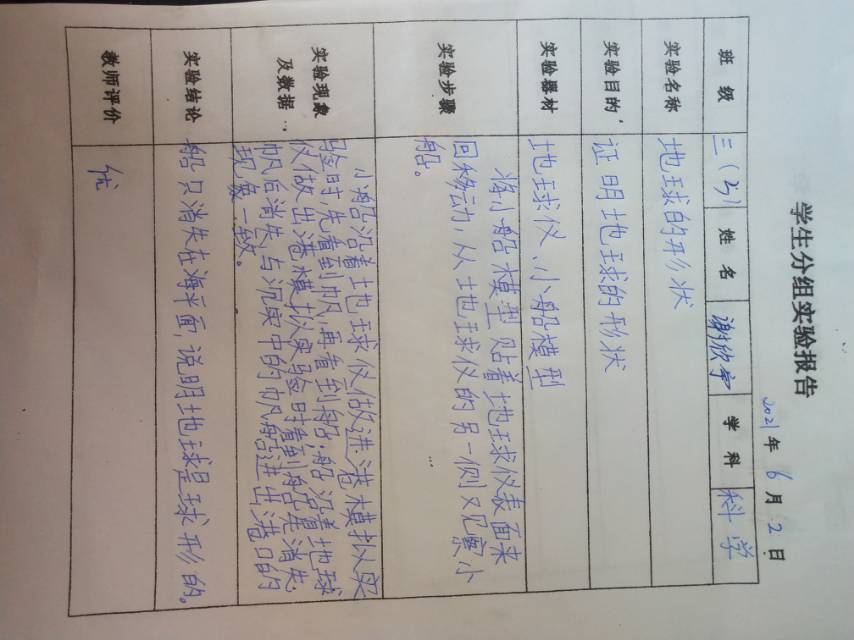 学生分组实验报告
2021年6月2日
班级 三(3) 姓名 谢欣宇 学科 科学
实验名称 地球的形状
实验目的 证明地球的形状
实验器材 地球仪、小船模型
实验步骤
将小船模型贴着地球仪表面来
回移动,从地球仪的另一侧观察小
船。
实验现象
及数据
小船沿着地球仪做进港模拟实
验时,先看到帆,再看到船;船沿着地球
仪做出港模拟实验时看到船先消失,
帆后消失,与现实中的帆船进出港口的
现象一致。
实验结论 船只消失在海平面,说明地球是球形的。
教师评价 优